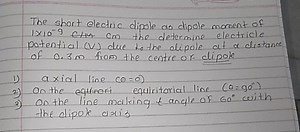 The short electric dipole as dipole moment of
1x10⁻⁹ Cm the determine electricle
potential (V) due to the dipole at a distance
of 0.3m from the centre of dipole
1) axial line (θ=0)
2) On the equitorial line (θ=90°)
3) On the line making & angle of 60° with
the dipok axis